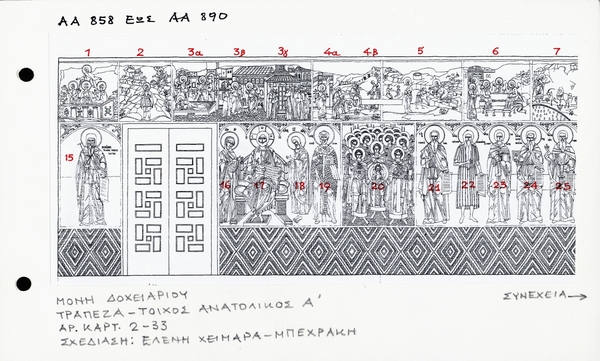 ΑΑ 858 ΕΩΣ ΑΑ 890
1 2 3α 3β 3γ 4α 4β 5 6 7
15 16 17 18 19 20 21 22 23 24 25
ΜΟΝΗ ΔΟΧΕΙΑΡΙΟΥ
ΤΡΑΠΕΖΑ-ΤΟΙΧΟΣ ΑΝΑΤΟΛΙΚΟΣ Α'
ΑΡ. ΚΑΡΤ. 2-33
ΣΧΕΔΙΑΣΗ: ΕΛΕΝΗ ΧΕΙΜΑΡΑ-ΜΠΕΧΡΑΚΗ
ΣΥΝΕΧΕΙΑ→